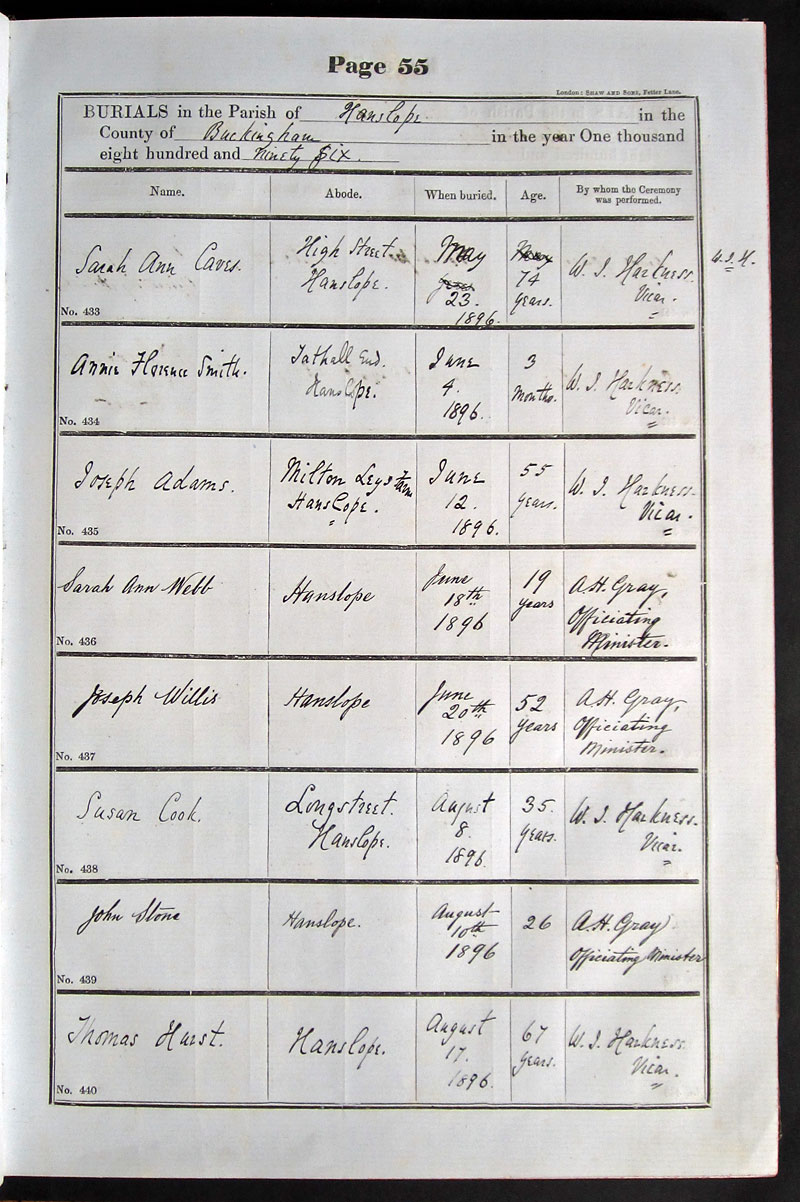 Page 55
London: SHAW AND SONS, Fetter Lane.
BURIALS in the Parish of Hanslope in the
County of Buckingham in the year One thousand
eight hundred and ninety six.
Name. Abode. When buried. Age. By whom the Ceremony was performed.
Sarah Ann Caves.
No. 433
High Street.
Hanslope.
May
23.
1896.
May
74
years.
W. J. Harkness.
Vicar.
W. J. H.
Annie Florence Smith.
No. 434
Tathall End.
Hanslope.
June
4.
1896.
3
months.
W. J. Harkness.
Vicar.
Joseph Adams.
No. 435
Milton Leys Farm
Hanslope.
June
12.
1896.
55
years.
W. J. Harkness.
Vicar.
Sarah Ann Webb
No. 436
Hanslope
June
18th
1896
19
years
A.H. Gray,
Officiating
Minister.
Joseph Willis
No. 437
Hanslope
June
20th
1896
52
years
A.H. Gray,
Officiating
Minister.
Susan Cook.
No. 438
Longstreet.
Hanslope.
August
8.
1896.
35.
years.
W. J. Harkness.
Vicar.
John Stone
No. 439
Hanslope.
August
10th
1896
26
A.H. Gray
Officiating Minister
Thomas Hurst.
No. 440
Hanslope.
August
17.
1896.
67
years.
W. J. Harkness.
Vicar.